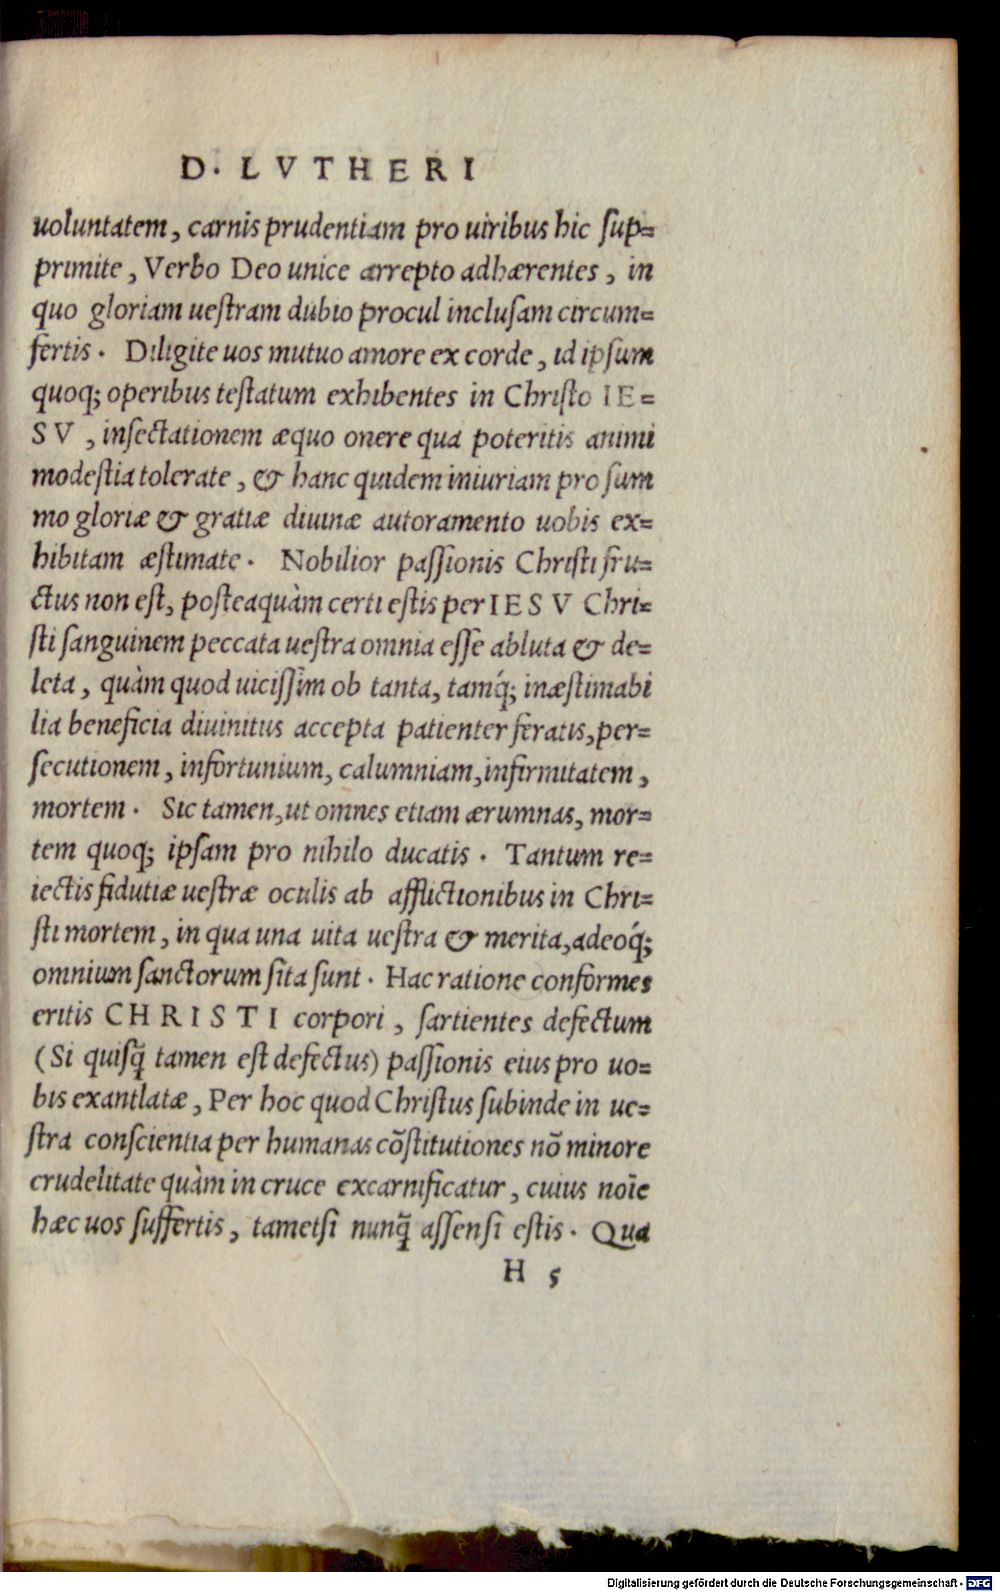 D. LVTHERI
uoluntatem, carnis prudentiam pro uiribus hic sup=
primite, Verbo Deo unice arrepto adhærentes, in
quo gloriam uestram dubio procul inclusam circum=
fertis. Diligite uos mutuo amore ex corde, id ipsum
quoq; operibus testatum exhibentes in Christo IE=
SV, insectationem æquo onere qua poteritis animi
modestia tolerate, & hanc quidem iniuriam pro sum
mo gloriæ & gratiæ diuinæ autoramento uobis ex=
hibitam æstimate. Nobilior passionis Christi fru=
ctus non est, posteaquàm certi estis per IESV Chri=
sti sanguinem peccata uestra omnia esse abluta & de=
leta, quàm quod uicissim ob tanta, tamq́; inæstimabi
lia beneficia diuinitus accepta patienter feratis, per=
secutionem, infortunium, calumniam, infirmitatem,
mortem. Sic tamen, ut omnes etiam ærumnas, mor=
tem quoq; ipsam pro nihilo ducatis. Tantum re=
iectis fidutiæ uestræ oculis ab afflictionibus in Chri=
sti mortem, in qua una uita uestra & merita, adeoq́;
omnium sanctorum sita sunt. Hac ratione conformes
eritis CHRISTI corpori, sartientes defectum
(Si quisq̃ tamen est defectus) passionis eius pro uo=
bis exantlatæ, Per hoc quod Christus subinde in ue=
stra conscientia per humanas cõstitutiones nõ minore
crudelitate quàm in cruce excarnificatur, cuius noĩe
hæc uos suffertis, tametsi nunq̃ assensi estis. Qua
H 5
Digitalisierung gefördert durch die Deutsche Forschungsgemeinschaft - DFG